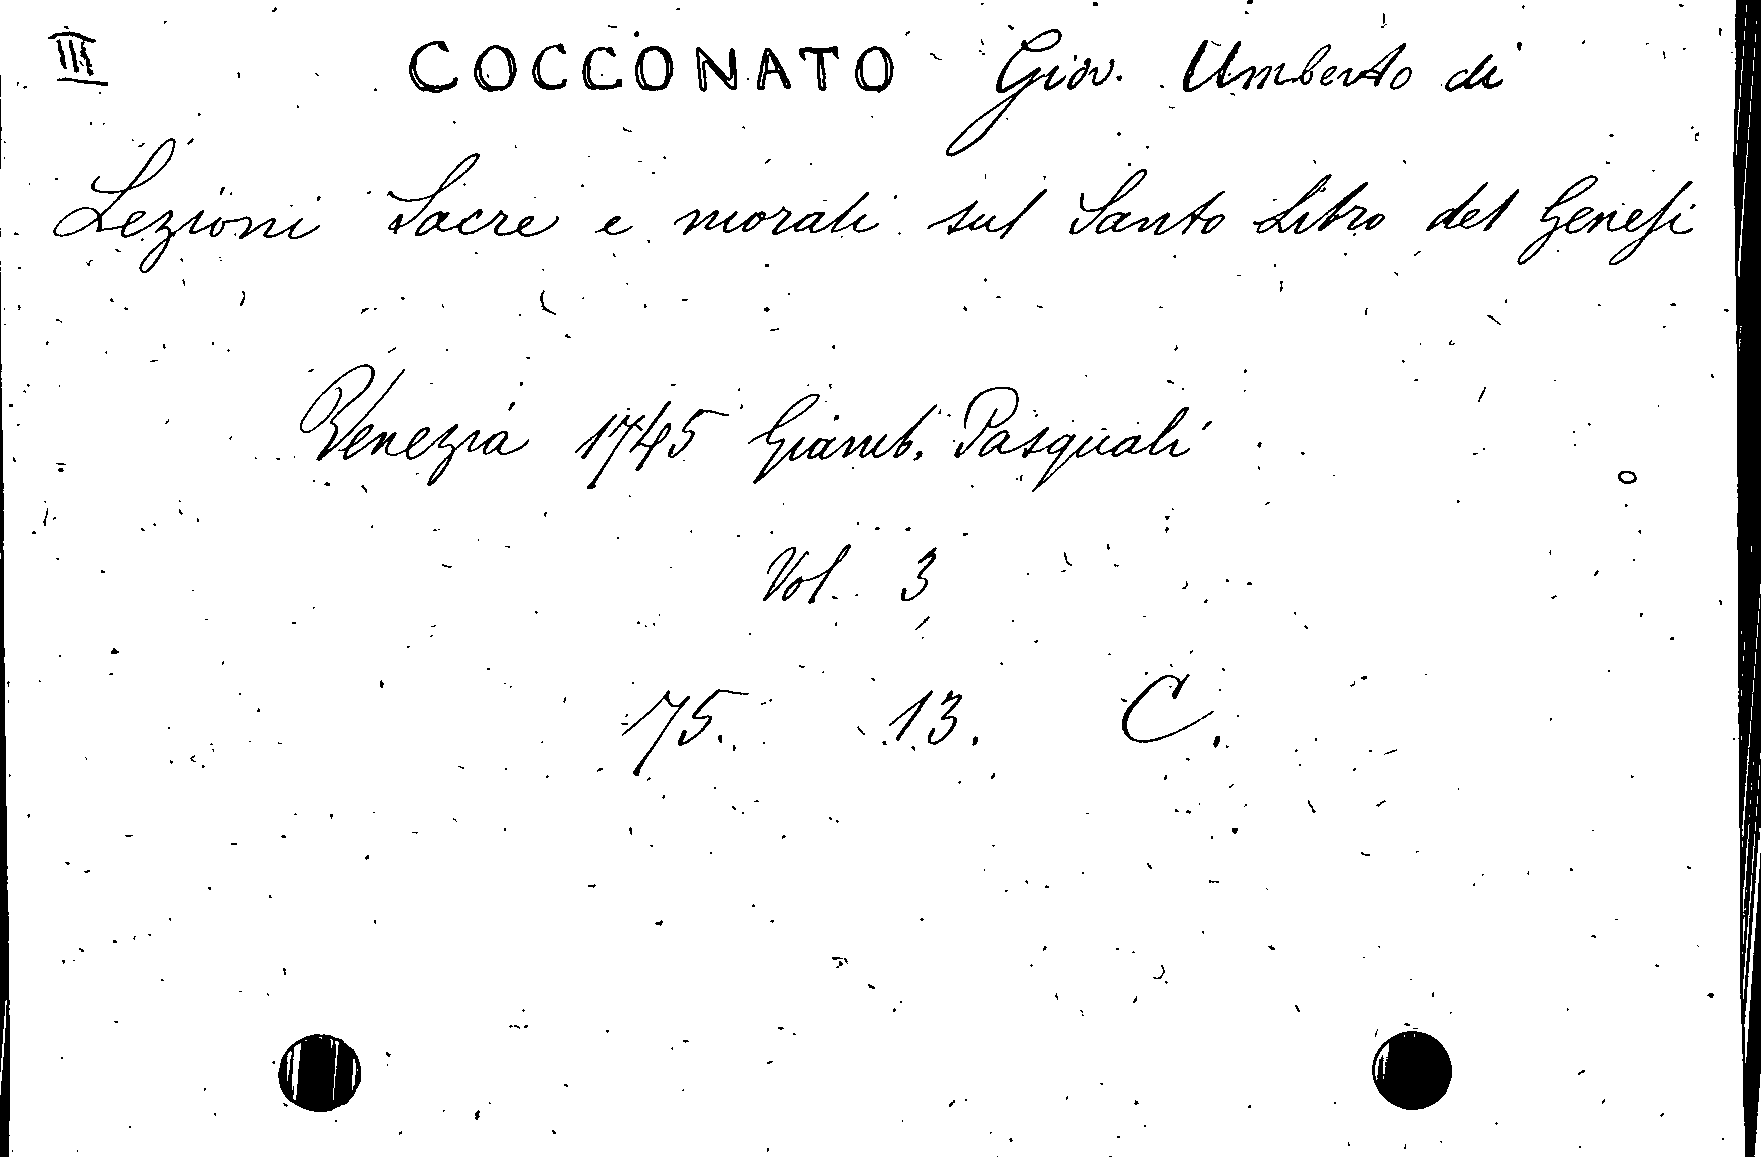 III COCCONATO Giov. Umberto di
Lezioni Sacre e morali sul Santo Libro del Genesi
Venezia 1745 Giamb. Pasquali
Vol. 3
75. 13. C.